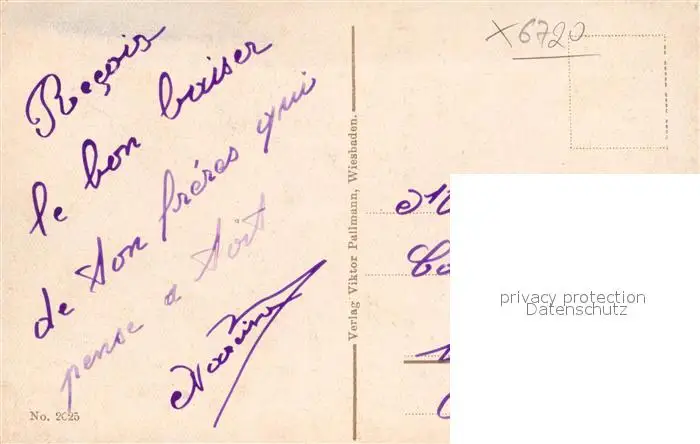 Reçois
le bon baiser
de son fréres qui
pense a soit
x6720
Verlag Viktor Pallmann, Wiesbaden.
No. 2025
privacy protection
Datenschutz